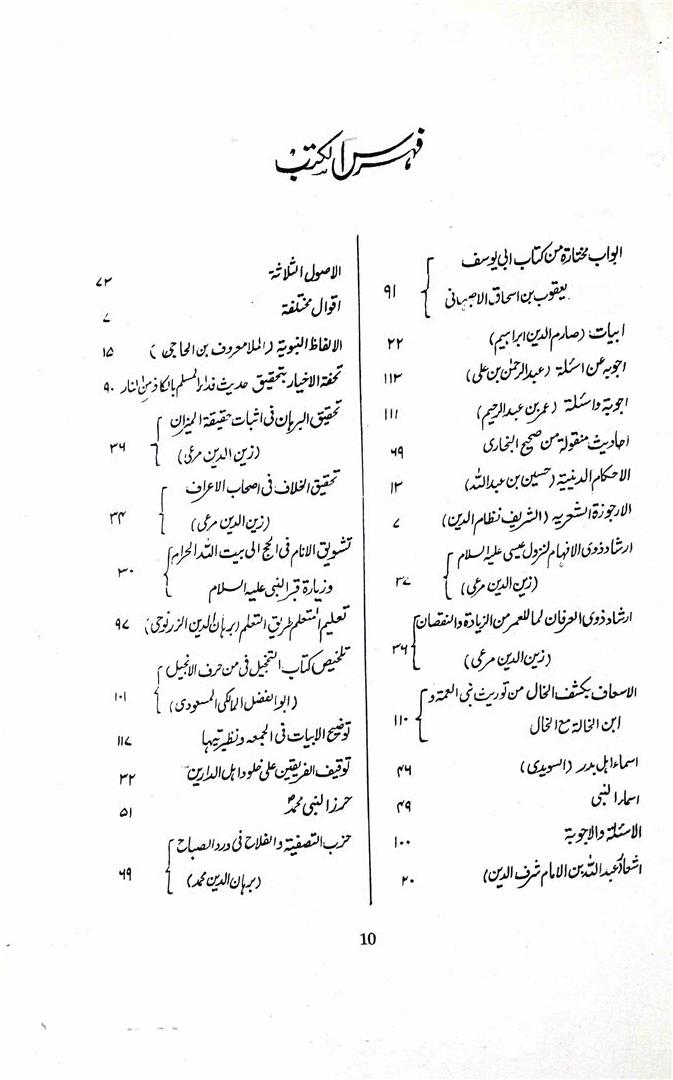 فہرس الکتب
ابواب مختارة من کتاب ابی یوسف
یعقوب بن اسحاق الاصبہانی ۹۱
ابیات (صارم الدین ابراہیم) ۲۲
اجوبہ عن اسئلة (عبدالرحمٰن بن علی) ۱۱۳
اجوبة واسئلة (عمر بن عبدالرحیم) ۱۱۱
احادیث منقولة من صحیح البخاری ۶۹
الاحکام الدینیة (حسین بن عبداللہ) ۱۳
الارجوزة الشعریة (الشریف نظام الدین) ۷
ارشاد ذوی الافہام لنزول عیسی علیہ السلام
(زین الدین مرعی) ۳۷
ارشاد ذوی العرفان لما للعمر من الزیادة والنقصان
(زین الدین مرعی) ۳۶
الاسعاف بکشف الحال من توریث بنی العمة و
ابن الخالة مع الخال ۱۱۰
اسماء اہل بدر (السویدی) ۴۶
اسماء النبی ۴۹
الاسئلة والاجوبة ۱۰۰
اشعار عبداللہ بن الامام شرف الدین) ۲۰
الاصول الثلاثة ۷۲
اقوال مختلفة ۷
الالفاظ النبویة (الملا معروف بن الحاجی) ۱۵
تحفة الاخیار بتحقیق حدیث فداء المسلم بالکافر من النار ۹۰
تحقیق البرہان فی اثبات حقیقة المیزان
(زین الدین مرعی) ۳۶
تحقیق الخلاف فی اصحاب الاعراف
(زین الدین مرعی) ۳۴
تشویق الانام فی الحج الی بیت اللہ الحرام
و زیارة قبر النبی علیہ السلام ۳۰
تعلیم المتعلم طریق التعلم (برہان الدین الزرنوجی) ۹۷
تلخیص کتاب التخجیل فی من حرف الانجیل
(ابوالفضل المالکی المسعودی) ۱۰۱
توضیح الابیات فی الجمعہ ونظیرتیہا ۱۱۷
توقیف الفریقین علی خلود اہل الدارین ۳۲
حرز النبی محمدؐ ۵۱
حزب التصفیة والفلاح فی ورد الصباح
(برہان الدین محمد) ۶۹
10